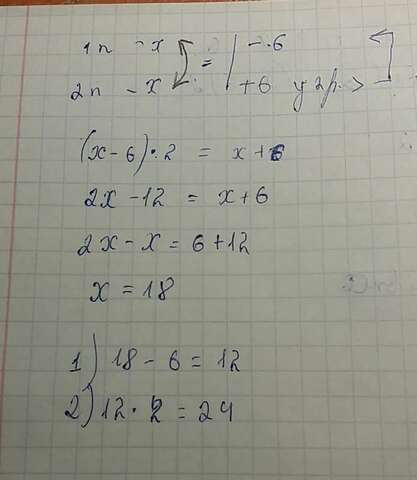 1п - х = | - 6
2п - х | + 6 у 2р. >
(х - 6) · 2 = х + 6
2х - 12 = х + 6
2х - х = 6 + 12
х = 18
1) 18 - 6 = 12
2) 12 · 2 = 24